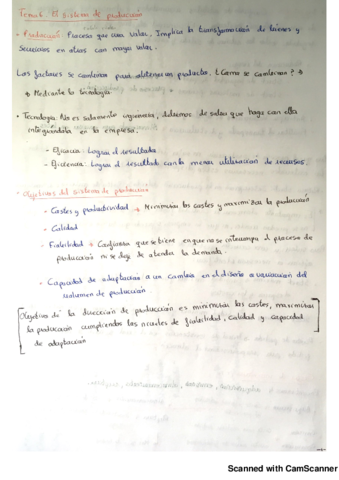 Tema 1. El sistema de producción
- Producción: Proceso que crea valor. Implica la transformación de bienes y
servicios en otros con mayor valor.
Los factores se combinan para obtener productos. ¿Cómo se combinan?
→ Mediante la tecnología
• Tecnología. No es solamente ingeniería, debemos de saber que hago con ella
integrándola en la empresa.
- Eficacia: Lograr el resultado
- Eficiencia: Lograr el resultado con la menor utilización de recursos.
• Objetivos del sistema de producción
- Costes y productividad → Minimizar los costes y maximizar la producción
- Calidad
- Fiabilidad → Confianza que se tiene en que no se interrumpa el proceso de
producción ni se deje de atender la demanda.
- Capacidad de adaptación a un cambio en el diseño o variación del
volumen de producción.
[Objetivo de la dirección de producción es minimizar los costes, maximizar
la producción cumpliendo los niveles de fiabilidad, calidad y capacidad
de adaptación]
Scanned with CamScanner